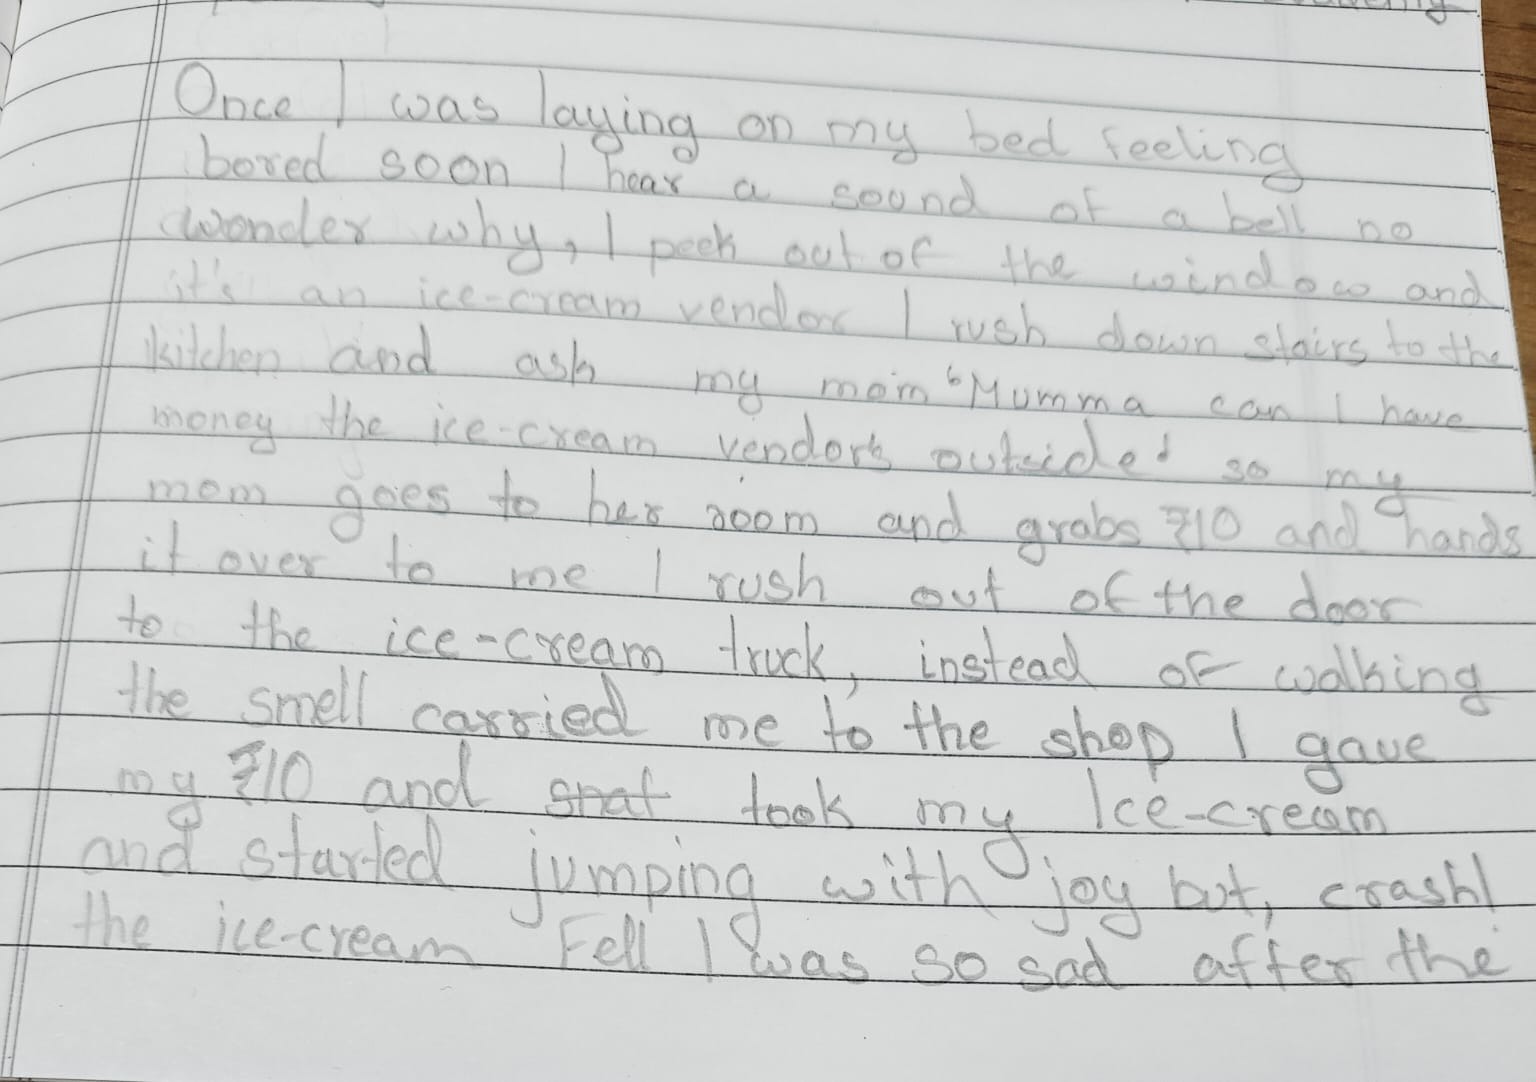 Once I was laying on my bed feeling
bored soon I hear a sound of a bell no
wonder why, I peek out of the window and
it's an ice-cream vendor I rush down stairs to the
kitchen and ask my mom "Mumma can I have
money the ice-cream vendor's outside" so my
mom goes to her room and grabs ₹10 and hands
it over to me I rush out of the door
to the ice-cream truck, instead of walking
the smell carried me to the shop I gave
my ₹10 and snat took my Ice-cream
and started jumping with joy but, crash!
the ice-cream Fell I was so sad after the